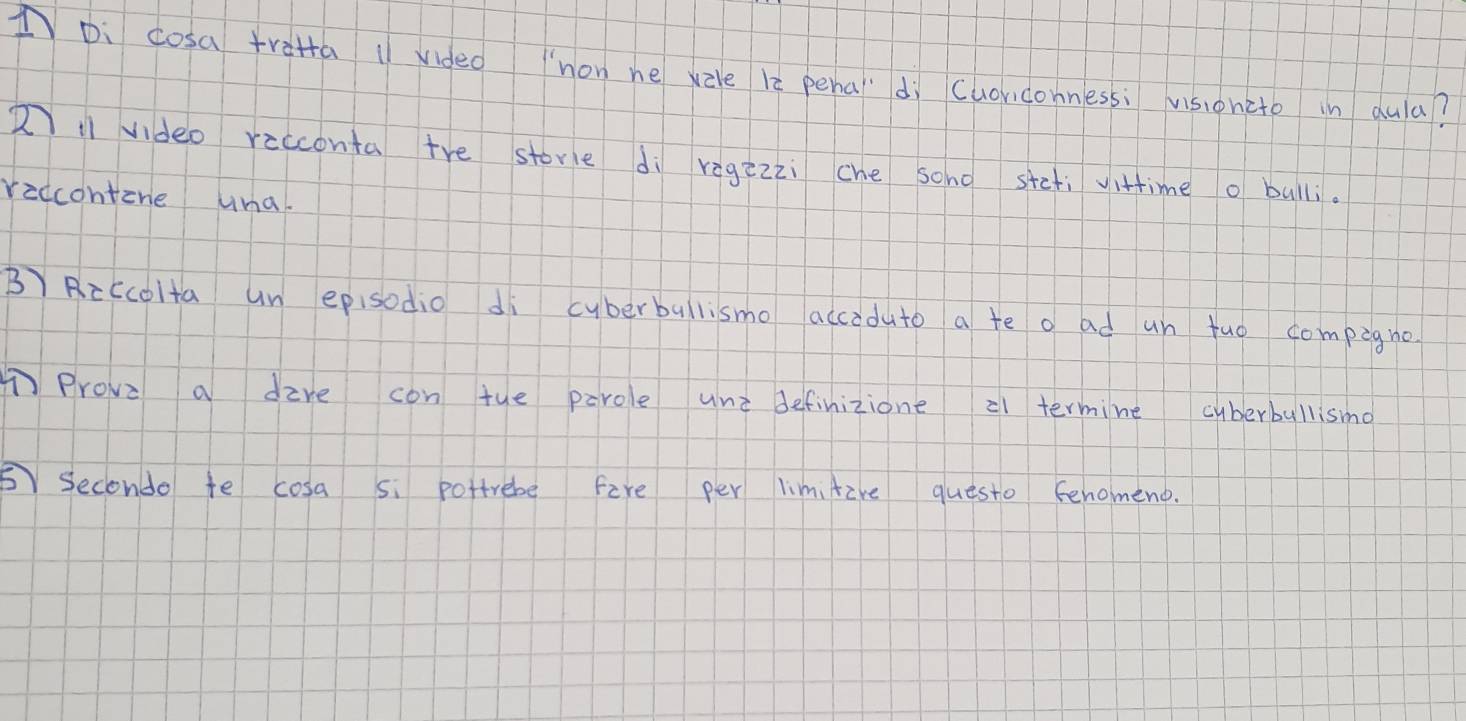 1) Di cosa tratta il video "non ne vale la pena" di Cuoriconnessi visionato in aula?
2) il video racconta tre storie di ragazzi che sono stati vittime o bulli.
raccontane una.
3) Raccolta un episodio di cyberbullismo accaduto a te o ad un tuo compagno.
4) Prova a dare con tue parole una definizione al termine cyberbullismo
5) secondo te cosa si pottrebe fare per limitare questo fenomeno.